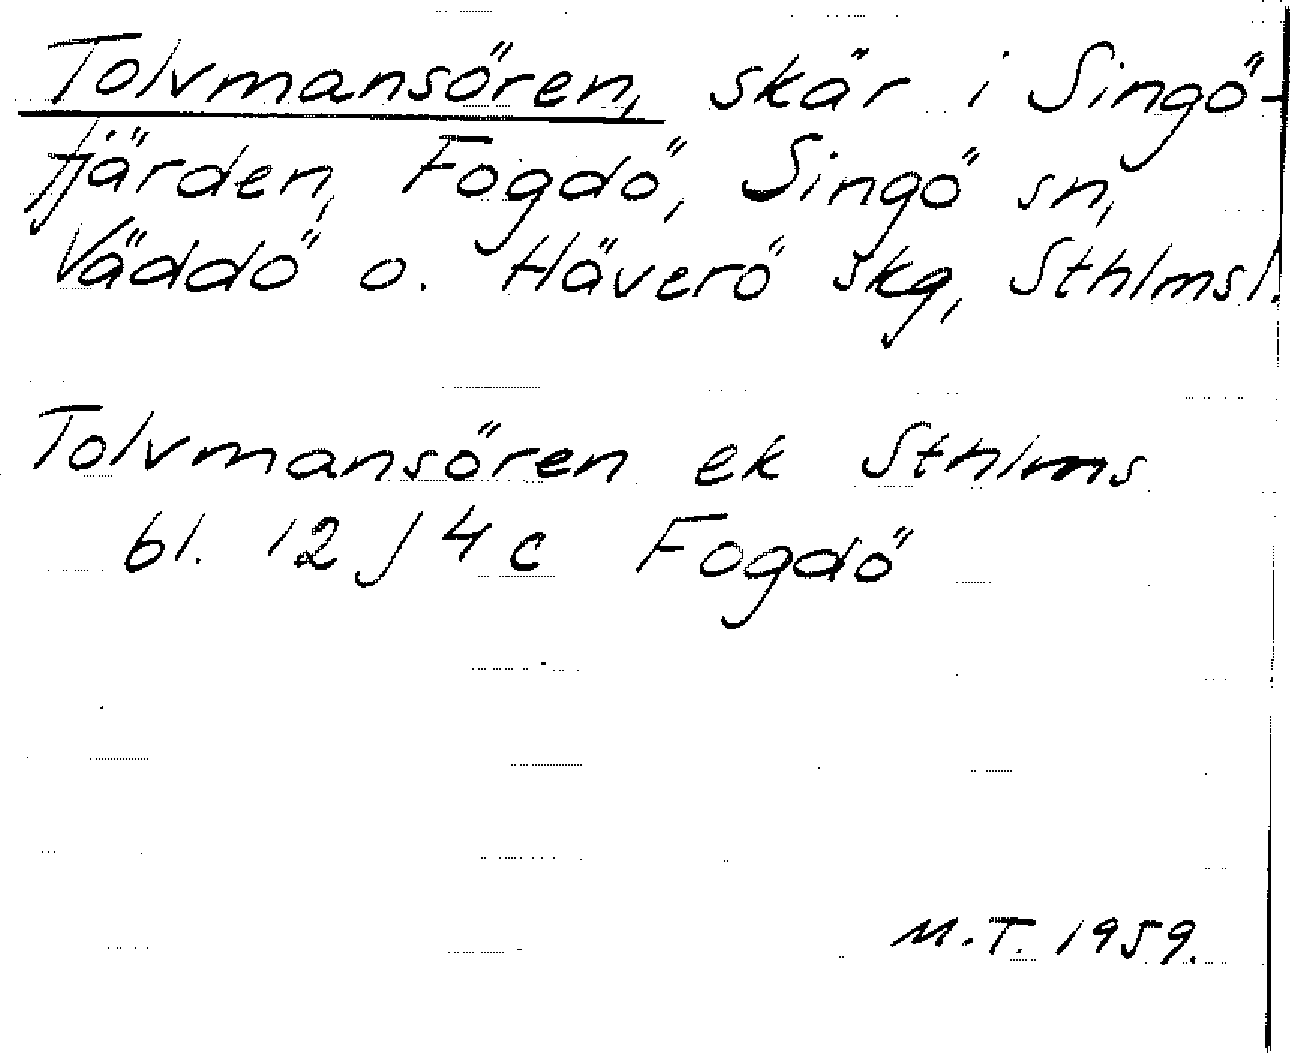 Tolvmansören, skär i Singö-
fjärden, Fogdö, Singö sn,
Väddö o. Häverö skg, Sthlmsl.
Tolvmansören ek Sthlms
bl. 12 J 4 c Fogdö
M.T. 1959.